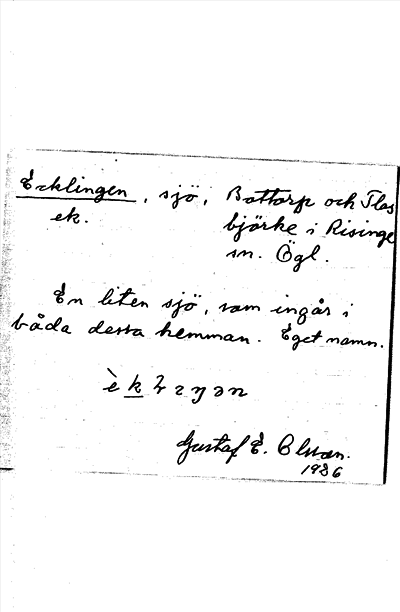 Ecklingen, sjö, Bottorp och Flos
ek. björke i Risinge
sn. Ögl.
En liten sjö, som ingår i
båda dessa hemman. Eget namn.
Gustaf E. Olsson.
1936